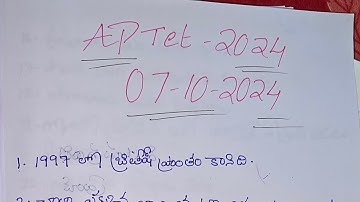 AP Tet - 2024
07-10-2024
1. 1997 లో బ్రిటిష్ ప్రాంతం కానిది.